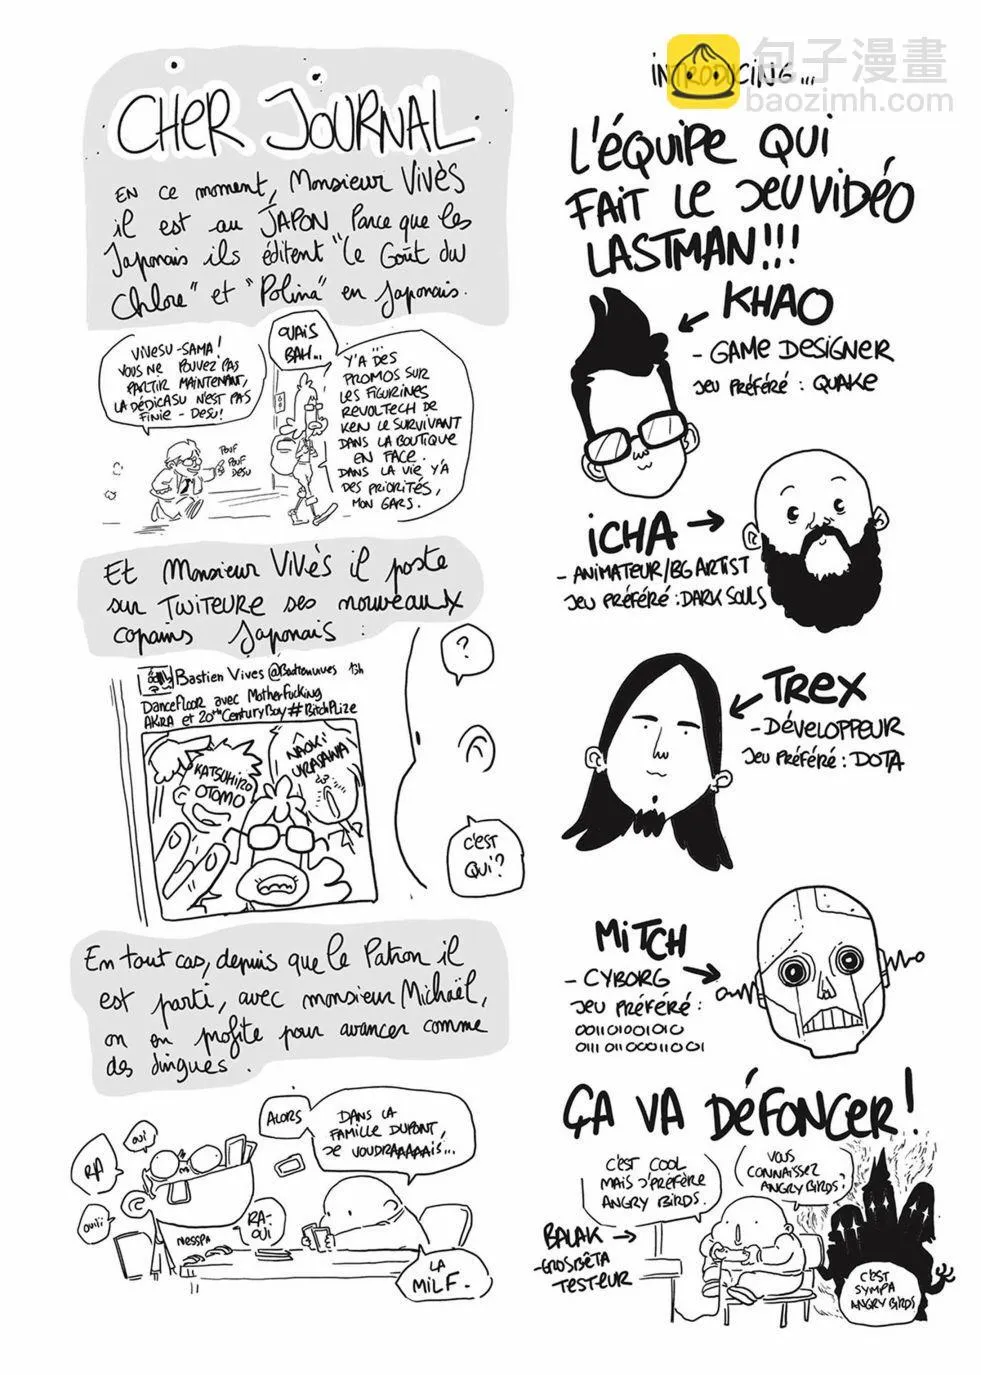 CHER JOURNAL
EN CE moment, Monsieur VIVÈS
il est au JAPON Parce que les
Japonais ils éditent "Le Goût du
Chlore" et "Polina" en Japonais.
VIVESU-SAMA!
VOUS NE POUVEZ PAS
PARTIR MAINTENANT,
LA DÉDICASU N'EST PAS
FINIE-DESU!
OUAIS
BAH...
Y'A DES
PROMOS SUR
LES FIGURINES
REVOLTECH DE
KEN LE SURVIVANT
DANS LA BOUTIQUE
EN FACE.
DANS LA VIE Y'A
DES PRIORITÉS,
MON GARS.
POUF
POUF
DESU
Et Monsieur Vivès il poste
sur TWITEURE ses nouveaux
copains Japonais :
Bastien Vives @Bastienvives 13h
Dancefloor avec Motherfucking
AKIRA et 20thCenturyBoy #BitchPlize
KATSUHIRO
OTOMO
NAOKI
URASAWA
?
C'EST
QUI?
En tout cas, depuis que le Patron il
est parti, avec monsieur Michaël,
on en profite pour avancer comme
des dingues.
ALORS
DANS LA
FAMILLE DUPONT,
JE VOUDRAAAAAIS...
OUI
RA
OUIII
NESSPA
RA-
OUI
LA
MILF-
INTRODUCING...
包子漫畫
baozimh.com
L'ÉQUIPE QUI
FAIT LE JEU VIDÉO
LASTMAN!!!
KHAO
- GAME DESIGNER
JEU PRÉFÉRÉ : QUAKE
ICHA
- ANIMATEUR/BG ARTIST
JEU PRÉFÉRÉ : DARK SOULS
TREX
- DÉVELOPPEUR
JEU PRÉFÉRÉ : DOTA
MITCH
- CYBORG
JEU PRÉFÉRÉ :
001101001010
0111011000011001
ÇA VA DÉFONCER!
C'EST COOL
MAIS J'PRÉFÈRE
ANGRY BIRDS.
VOUS
CONNAISSEZ
ANGRY BIRDS?
BALAK
- GROSBÊTA
TESTEUR
C'EST
SYMPA
ANGRY BIRDS